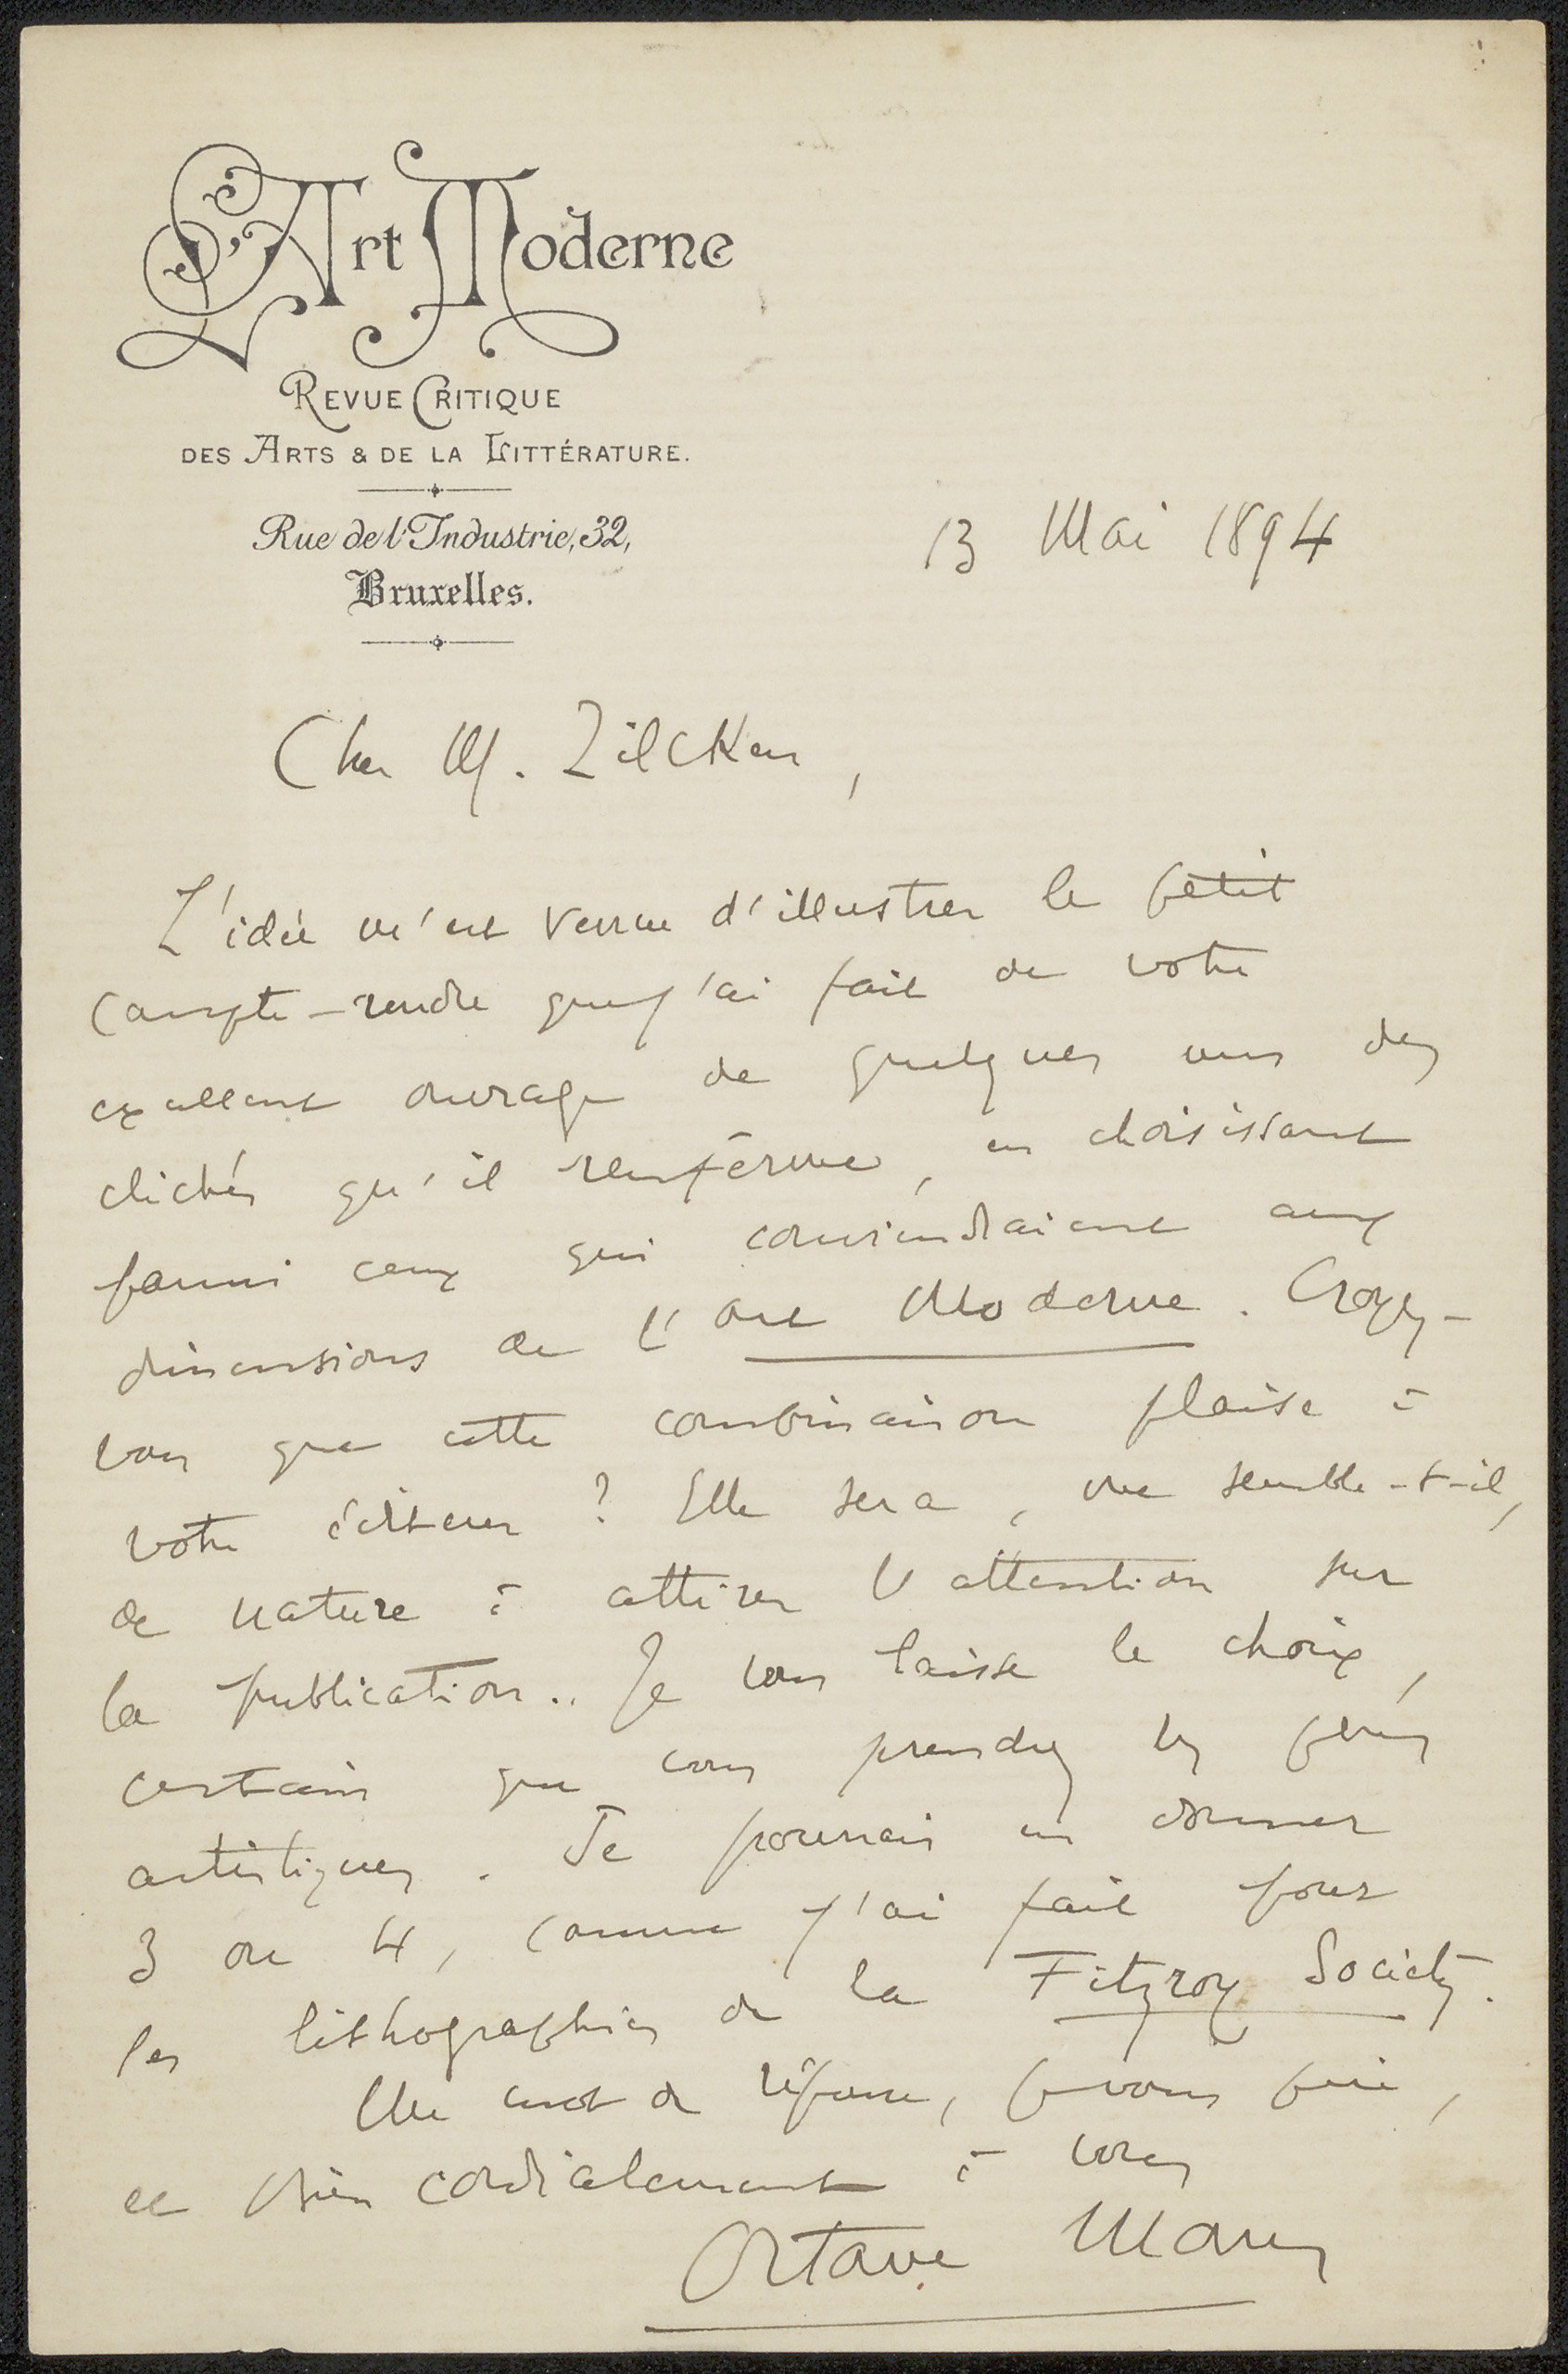 L'Art Moderne
REVUE CRITIQUE
DES ARTS & DE LA LITTÉRATURE.
Rue de l'Industrie, 32,
Bruxelles.
13 Mai 1894
Cher M. Zilcken,
L'idée m'est venue d'illustrer le petit
compte-rendu que j'ai fait de votre
excellent ouvrage de quelques uns des
clichés qu'il renferme, en choisissant
parmi ceux qui conviendraient aux
dimensions de l'Art Moderne. Croyez-
vous que cette combinaison plaise à
votre éditeur ? Elle sera, me semble-t-il,
de nature à attirer l'attention sur
la publication.. Je vous laisse le choix,
certain que vous prendrez les plus
artistiques. Je pourrais en donner
3 ou 4, comme j'ai fait pour
les lithographies de la Fitzroy Society.
Un mot de réponse, je vous prie,
et bien cordialement à vous
Octave Maus